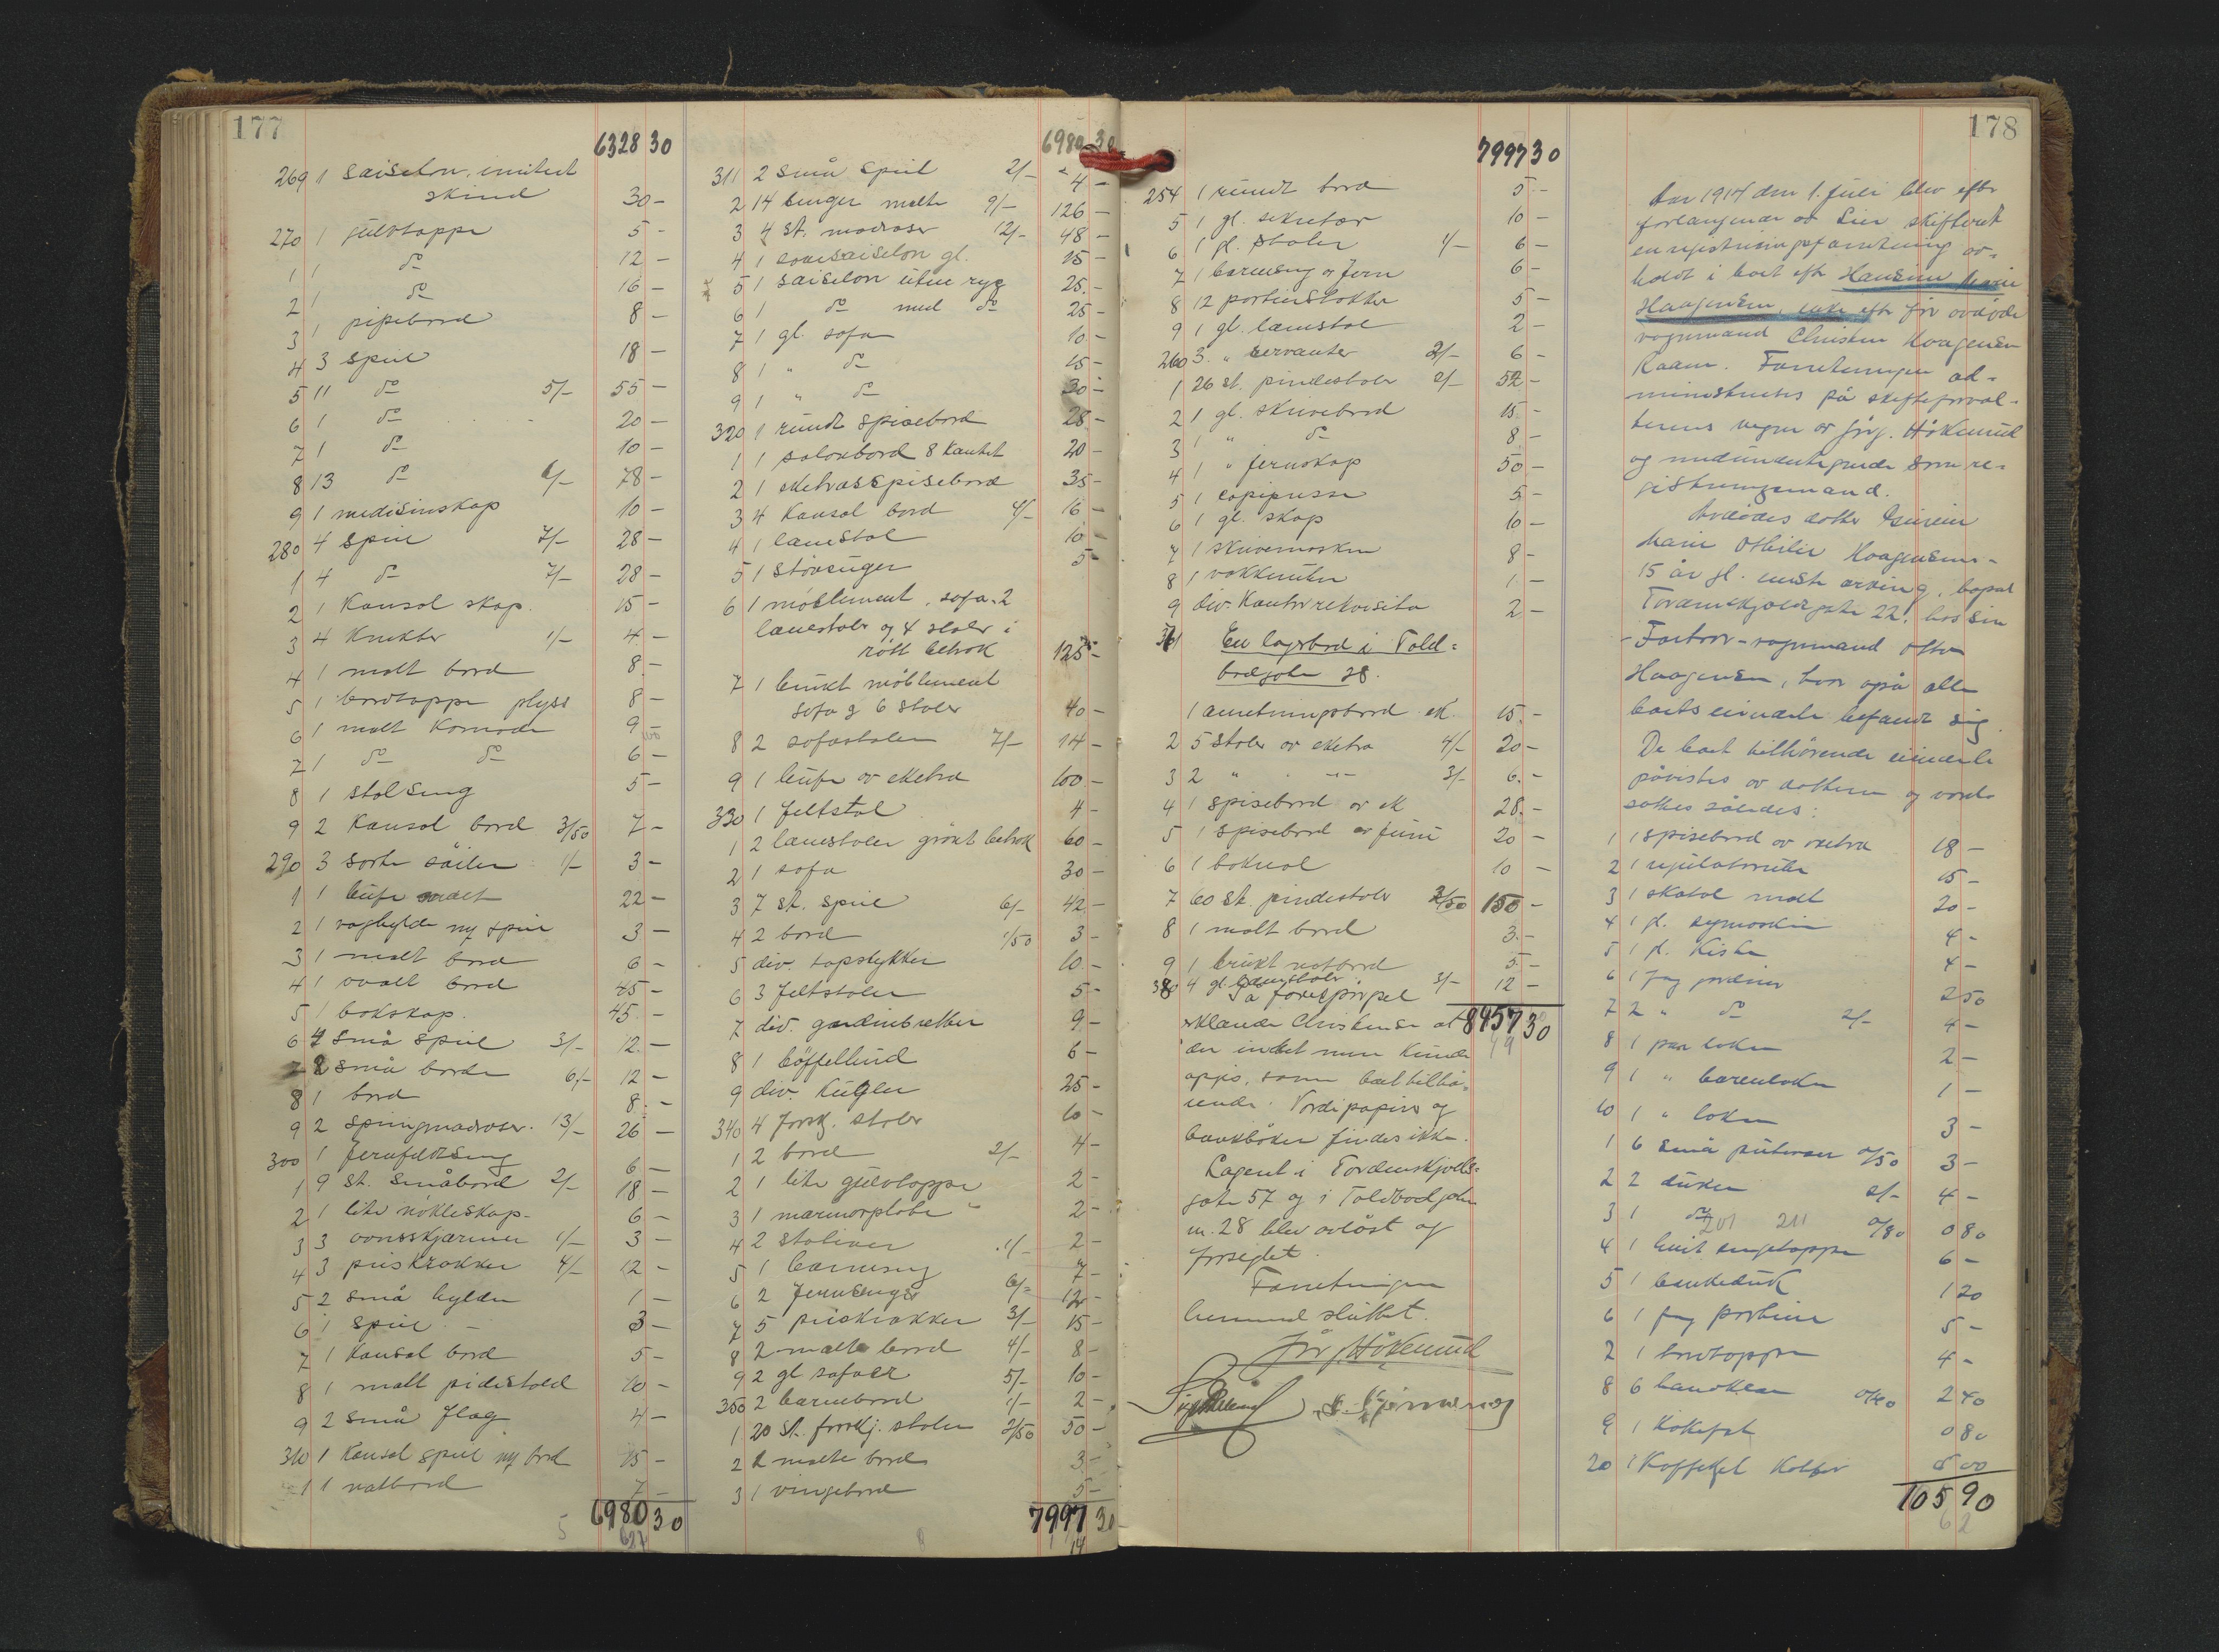 177
6328 30
269 1 saiselon, imitert
skind 30 -
270 1 gulvtæppe 5 -
1 1 do 12 -
2 1 do 16 -
3 1 pipebord 8 -
4 3 speil 18 -
5 11 do 5/- 55 -
6 1 do 20 -
7 1 do 10 -
8 13 do 6/- 78 -
9 1 medisinskap 10 -
280 4 speil 7/- 28 -
1 4 do 7/- 28 -
2 1 Konsol skap 15 -
3 4 Knekter 1/- 4 -
4 1 malt bord 8 -
5 1 bordtæppe plyss 8 -
6 1 malt Komode 9 -
7 1 do do 6 -
8 1 stolseng 5 -
9 2 Konsol bord 3/50 7 -
290 3 sorte søiler 1/- 3 -
1 1 bufe malt 22 -
2 1 væghylde ny speil 3 -
3 1 malt bord 6 -
4 1 ovalt bord 45 -
5 1 bokskap. 45 -
6 4 små speil 3/- 12 -
7 2 små borde 6/- 12 -
8 1 bord 8 -
9 2 springmadrasser. 13/- 26 -
300 1 jernfeltseng 6 -
1 9 st. småbord 2/- 18 -
2 1 lite nökleskap 6 -
3 3 ovnsskjærmer 1/- 3 -
4 3 puskrakker 4/- 12 -
5 2 små hylder 1 -
6 1 speil 3 -
7 1 Konsol bord 5 -
8 1 malt pidestald 10 -
9 2 små flag 4 -
310 1 Konsol speil ny bord 15 -
1 1 natbord 7 -
6980 30
6980 30
311 2 små speil 2/- 4 -
2 14 senger malte 9/- 126 -
3 4 st. madrasser 12/- 48 -
4 1 saiselon gl. 15 -
5 1 saiselon uten ryg 25 -
6 1 do med do 25 -
7 1 gl. sofa 10 -
8 1 " do 15 -
9 1 " do 30 -
320 1 rundt spisebord 28 -
1 1 salonbord 8 kantet 20 -
2 1 eketræsspisebord 35 -
3 4 Konsol bord 4/- 16 -
4 1 lænestol 10 -
5 1 stövsuger 5 -
6 1 möblement, sofa, 2
lænestoler og 4 stoler i
rött betræk 125 -
7 1 brukt möblement
sofa og 6 stoler 40 -
8 2 sofastoler 7/- 14 -
9 1 bufe av eketræ 100 -
330 1 feltstol 4 -
1 2 lænestoler grönt betræk 60 -
2 1 sofa 30 -
3 7 st. speil 6/- 42 -
4 2 bord 1/50 3 -
5 div. topstykker 10 -
6 3 feltstoler 5 -
7 div. gardinbretter 9 -
8 1 böffellind 6 -
9 div. kugler 25 -
340 4 forskj. stoler 10 -
1 2 bord 2/- 4 -
2 1 lite gulvtæppe 2 -
3 1 marmorplate 2 -
4 2 stativer 1/- 2 -
5 1 barneseng 7 -
6 2 jernsenger 6/- 12 -
7 5 puskrakker 3/- 15 -
8 2 malte bord 4/- 8 -
9 2 gl. sofaer 5/- 10 -
350 2 barnebord 1/- 2 -
1 20 st. forskj. stoler 2/50 50 -
2 2 malte bord 3 -
3 1 vingebord 5 -
7997 30
7997 30
254 1 rundt bord 5 -
5 1 gl. sekretær 10 -
6 1 gl. stoler 6 -
7 1 barneseng av jern 6 -
8 12 portierstokke 5 -
9 1 gl. lænestol 2 -
260 3 " servanter 2/- 6 -
1 26 st. pindestoler 2/- 52 -
2 1 gl. skrivebord 15 -
3 1 " do 8 -
4 1 " jernskap 50 -
5 1 copipresse 5 -
6 1 gl. skap 10 -
7 1 skrivemaskin 8 -
8 1 vækkeruhr 1 -
9 div. Kontorrekvisita 2 -
En lagerbod i Told-
bodgaten 28.
1 anretningsbord ek. 15 -
2 5 stoler av eketræ 4/- 20 -
3 2 " - " - 3/- 6 -
4 1 spisebord av ek 28 -
5 1 spisebord av furu 20 -
6 1 bokreol 10 -
7 60 st. pindestoler 2/50 150 -
8 1 malt bord 3 -
9 1 brukt natbord 5 -
380 4 gl. lænestoler 3/- 12 -
8457 30
På forespörgsel
erklærede Christensen at
der indtet mer kunde
opgis, som boet tilhö-
rende. Verdipapirer og
bankböker findes ikke.
Lageret i Tordenskjolds-
gate 57 og i Toldbodgaten
nr. 28 blev avlåst og
forseglet.
Forretningen
hermed sluttet.
Jörg. Håkerud
178
Aar 1914 den 1. juli blev efter
forlangende av Lier skifteret
en registreringsforretning av-
holdt i boet efter Hansine Marie
Haagensen, enke efter för avdöde
vognmand Christen Haagensen
Raaen. Forretningen ad-
ministreres på skifteforval-
terens vegne av Jörg. Håkerud
og medundertegnede som re-
gistreringsmand.
Avdödes datter
Marie Othilie Haagensen -
15 år gl. eneste arving, bopæl
Tordenskjoldsgate 22, hos sin
Farbror - vognmand Olton
Haagensen, hvor også alle
boets eiendele befandt sig.
De boet tilhörende eiendele
påvistes av datteren og verd-
sattes således:
1 1 spisebord av eketræ 18 -
2 1 regulatoruhr 15 -
3 1 skatol malt 20 -
4 1 gl. symaskin 4 -
5 1 gl. Kiste 4 -
6 1 fag gardiner 2 50
7 2 " do 2/- 4 -
8 1 par laken 2 -
9 1 " barnelaken 1 -
10 1 " laken 3 -
1 6 små putevar 0/50 3 -
2 2 duker 2/- 4 -
3 1 do 0/80 0 80
4 1 hvit sengetæppe 6 -
5 1 bankeduk 1 20
6 1 fag portiere 5 -
7 1 bordtæppe 4 -
8 6 handklær 0/40 2 40
9 1 kokefat 0 80
20 1 Kaffekjel Kobber 5 00
105 90